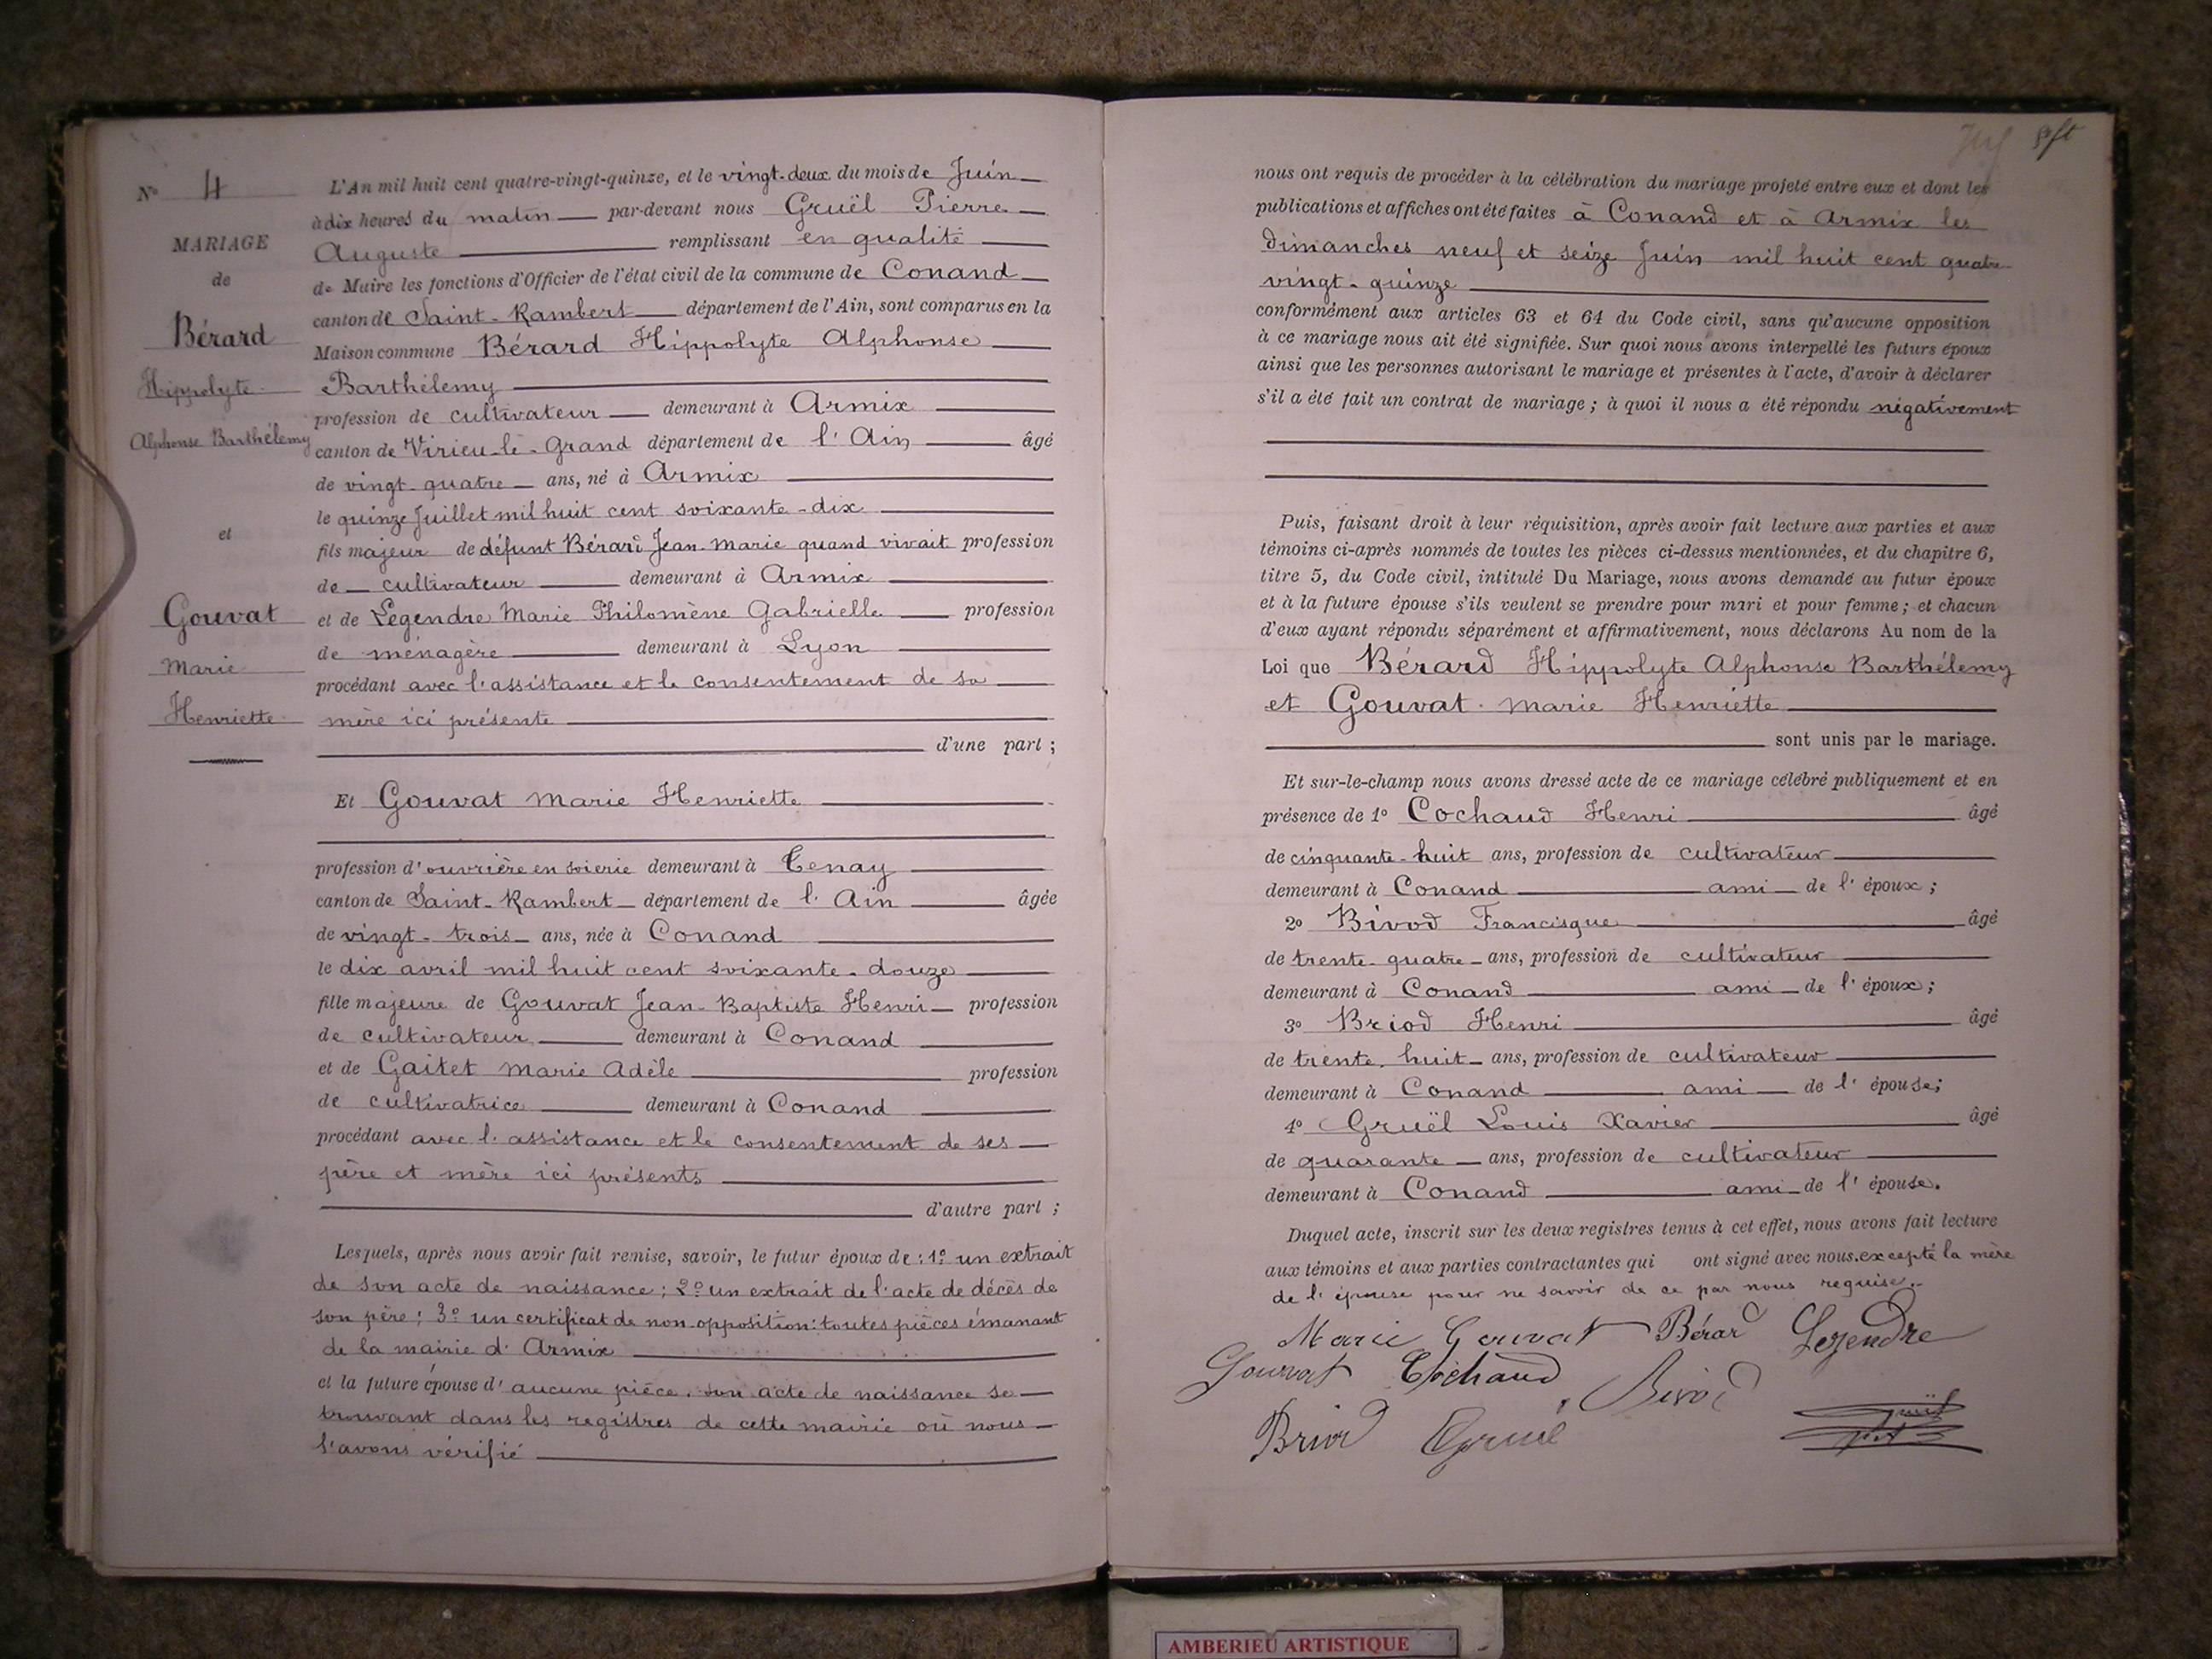 N° 4
MARIAGE
de
Bérard
Hippolyte
Alphonse Barthélemy
et
Gouvat
Marie
Henriette
L'An mil huit cent quatre-vingt-quinze, et le vingt-deux du mois de Juin
à dix heures du matin par-devant nous Gruël Pierre
Auguste remplissant en qualité
de Maire les fonctions d'Officier de l'état civil de la commune de Conand
canton de Saint-Rambert département de l'Ain, sont comparus en la
Maison commune Bérard Hippolyte Alphonse
Barthélemy
profession de cultivateur demeurant à Armix
canton de Virieu-le-Grand département de l'Ain âgé
de vingt-quatre ans, né à Armix
le quinze Juillet mil huit cent soixante-dix
fils majeur de défunt Bérard Jean-Marie quand vivait profession
de cultivateur demeurant à Armix
et de Legendre Marie Philomène Gabrielle profession
de ménagère demeurant à Lyon
procédant avec l'assistance et le consentement de sa
mère ici présente
d'une part ;
Et Gouvat Marie Henriette
profession d'ouvrière en soierie demeurant à Tenay
canton de Saint-Rambert département de l'Ain âgée
de vingt-trois ans, née à Conand
le dix avril mil huit cent soixante-douze
fille majeure de Gouvat Jean-Baptiste Henri profession
de cultivateur demeurant à Conand
et de Gaitet Marie Adèle profession
de cultivatrice demeurant à Conand
procédant avec l'assistance et le consentement de ses
père et mère ici présents
d'autre part ;
Lesquels, après nous avoir fait remise, savoir, le futur époux de : 1° un extrait
de son acte de naissance ; 2° un extrait de l'acte de décès de
son père ; 3° un certificat de non-opposition : toutes pièces émanant
de la mairie d'Armix
et la future épouse d'aucune pièce. son acte de naissance se
trouvant dans les registres de cette mairie où nous
l'avons vérifié
nous ont requis de procéder à la célébration du mariage projeté entre eux et dont les
publications et affiches ont été faites à Conand et à Armix les
dimanches neuf et seize Juin mil huit cent quatre-
vingt-quinze
conformément aux articles 63 et 64 du Code civil, sans qu'aucune opposition
à ce mariage nous ait été signifiée. Sur quoi nous avons interpellé les futurs époux
ainsi que les personnes autorisant le mariage et présentes à l'acte, d'avoir à déclarer
s'il a été fait un contrat de mariage ; à quoi il nous a été répondu négativement
Puis, faisant droit à leur réquisition, après avoir fait lecture aux parties et aux
témoins ci-après nommés de toutes les pièces ci-dessus mentionnées, et du chapitre 6,
titre 5, du Code civil, intitulé Du Mariage, nous avons demandé au futur époux
et à la future épouse s'ils veulent se prendre pour mari et pour femme ; et chacun
d'eux ayant répondu séparément et affirmativement, nous déclarons Au nom de la
Loi que Bérard Hippolyte Alphonse Barthélemy
et Gouvat Marie Henriette
sont unis par le mariage.
Et sur-le-champ nous avons dressé acte de ce mariage célébré publiquement et en
présence de 1° Cochaud Henri âgé
de cinquante-huit ans, profession de cultivateur
demeurant à Conand ami de l'époux ;
2° Bivod Francisque âgé
de trente-quatre ans, profession de cultivateur
demeurant à Conand ami de l'époux ;
3° Briod Henri âgé
de trente-huit ans, profession de cultivateur
demeurant à Conand ami de l'épouse ;
4° Gruël Louis Xavier âgé
de quarante ans, profession de cultivateur
demeurant à Conand ami de l'épouse.
Duquel acte, inscrit sur les deux registres tenus à cet effet, nous avons fait lecture
aux témoins et aux parties contractantes qui ont signé avec nous. excepté la mère
de l'épouse pour ne savoir de ce par nous requise.
Marie Gouvat Bérard Legendre
Gouvat Cochaud Bivod
Briod Gruël
AMBERIEU ARTISTIQUE